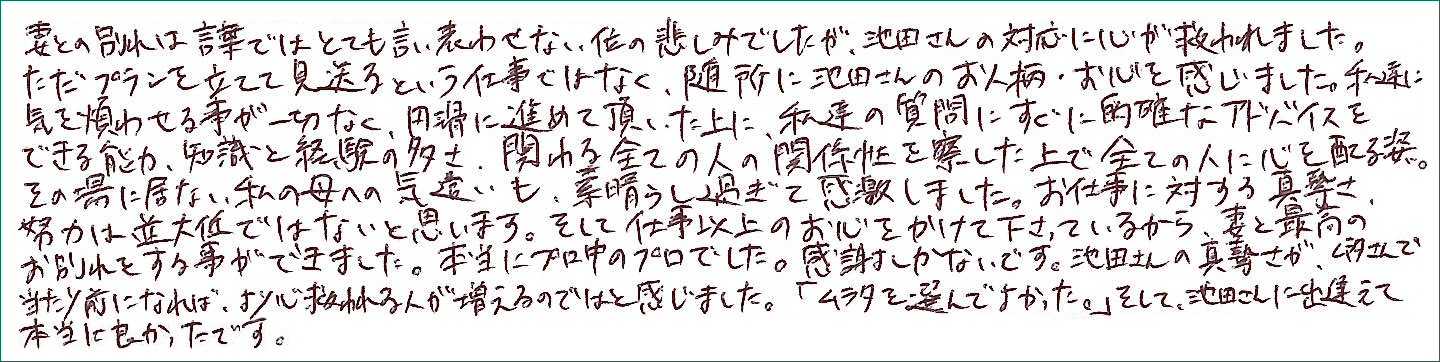 妻との別れは言葉ではとても言い表わせない位の悲しみでしたが、池田さんの対応に心が救われました。
ただプランを立てて見送るという仕事ではなく、随所に池田さんのお人柄・お心を感じました。私達に
気を煩わせる事が一切なく、円滑に進めて頂いた上に、私達の質問にすぐに的確なアドバイスを
できる能力、知識と経験の多さ、関わる全ての人の関係性を察した上で全ての人に心を配る姿。
その場に居ない私の母への気遣いも、素晴らし過ぎて感激しました。お仕事に対する真摯さ、
努力は並大低ではないと思います。そして仕事以上のお心をかけて下さっているから、妻と最高の
お別れをする事ができました。本当にプロ中のプロでした。感謝しかないです。池田さんの真摯さが、ムラタさんで
当たり前になれば、より心救われる人が増えるのではと感じました。「ムラタを選んでよかった。」そして、池田さんに出逢えて
本当に良かったです。